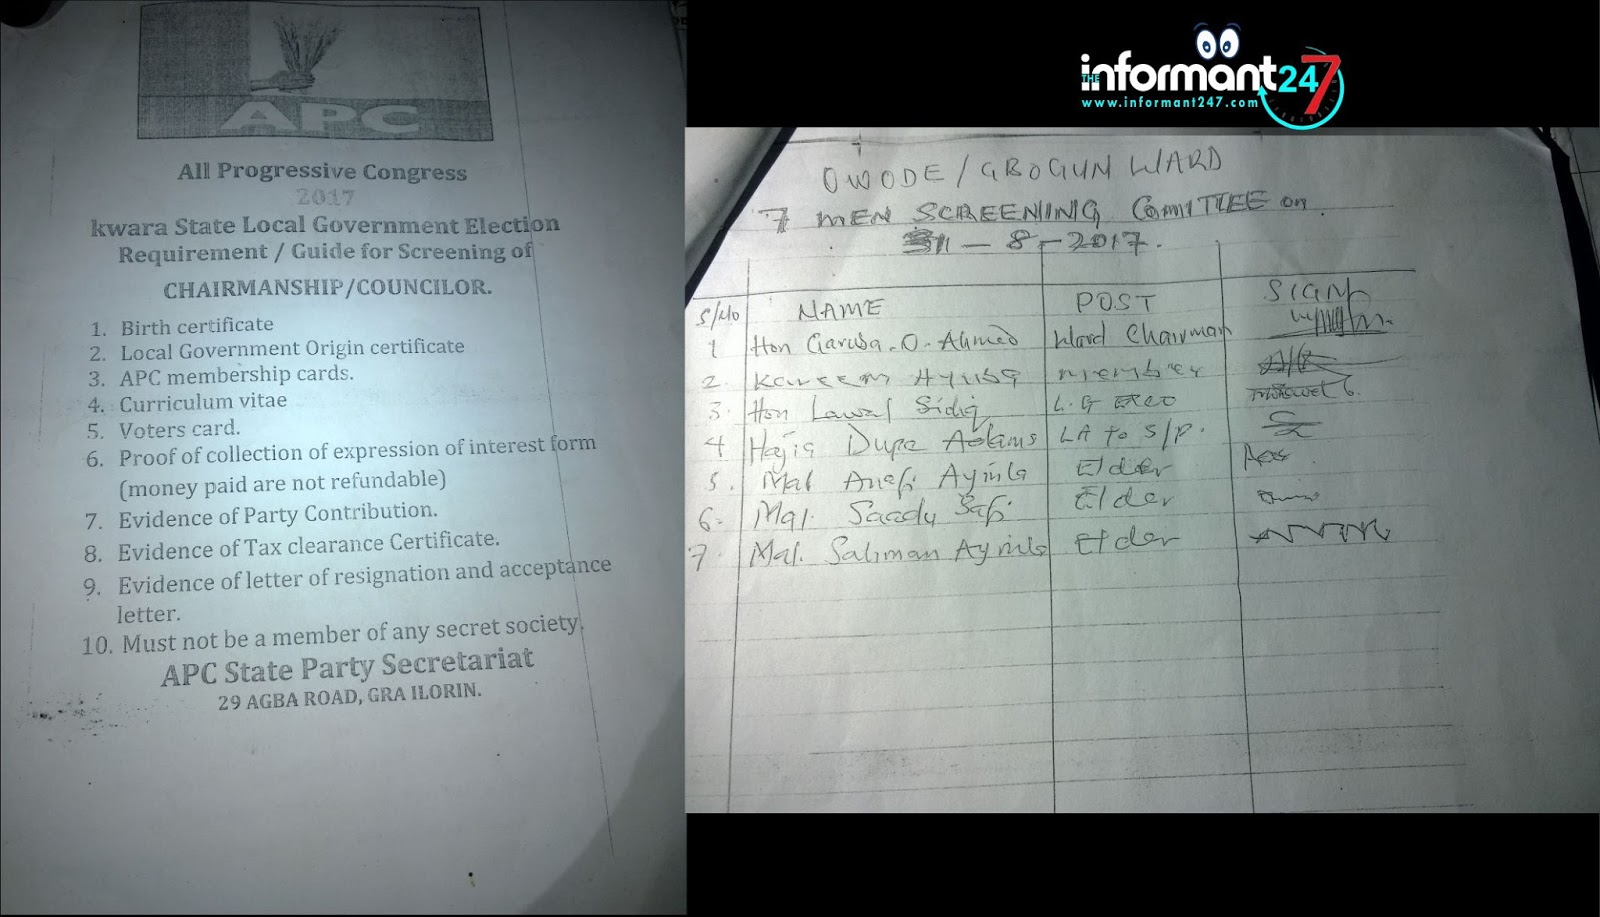 APC
All Progressive Congress
2017
kwara State Local Government Election
Requirement / Guide for Screening of
CHAIRMANSHIP/COUNCILOR.
1. Birth certificate
2. Local Government Origin certificate
3. APC membership cards.
4. Curriculum vitae
5. Voters card.
6. Proof of collection of expression of interest form
(money paid are not refundable)
7. Evidence of Party Contribution.
8. Evidence of Tax clearance Certificate.
9. Evidence of letter of resignation and acceptance
letter.
10. Must not be a member of any secret society.
APC State Party Secretariat
29 AGBA ROAD, GRA ILORIN.
THE informant247
www.informant247.com
OWODE / GBOGUN WARD
7 MEN SCREENING COMMITTEE on
- 8 - 2017.
S/No NAME POST SIGN
1 Hon Garuba . O . Ahmed Ward Chairman
2. Kareem Ayuba member
3. Hon Lawal Sidiq L.G Exco
4 Hajia Dupe Adams LA to S/P.
5. Mal Anafi Ayinla Elder
6. Mal. Saadu Safi Elder
7. Mal. Saliman Ayinla Elder